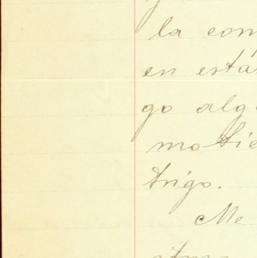 la con
en está
go alg
motie
trigo.
Me